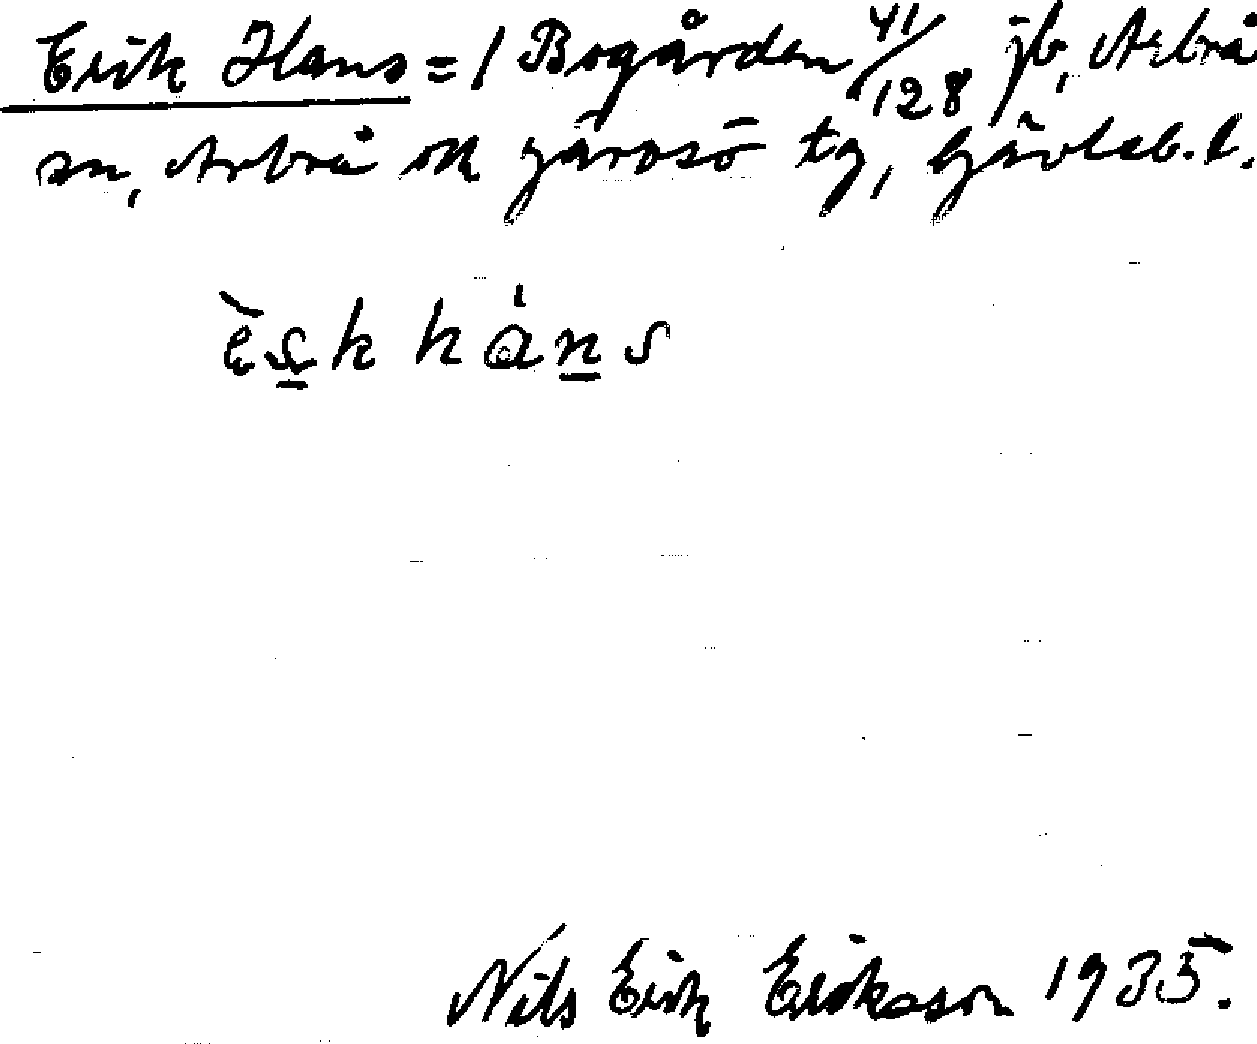 Erik Hans = 1 Bogården 41/128 jb, Arbrå
sn, Arbrå ok Järvsö tg, Gävleb. l.
èsk háns
Nils Erik Eriksson 1935.